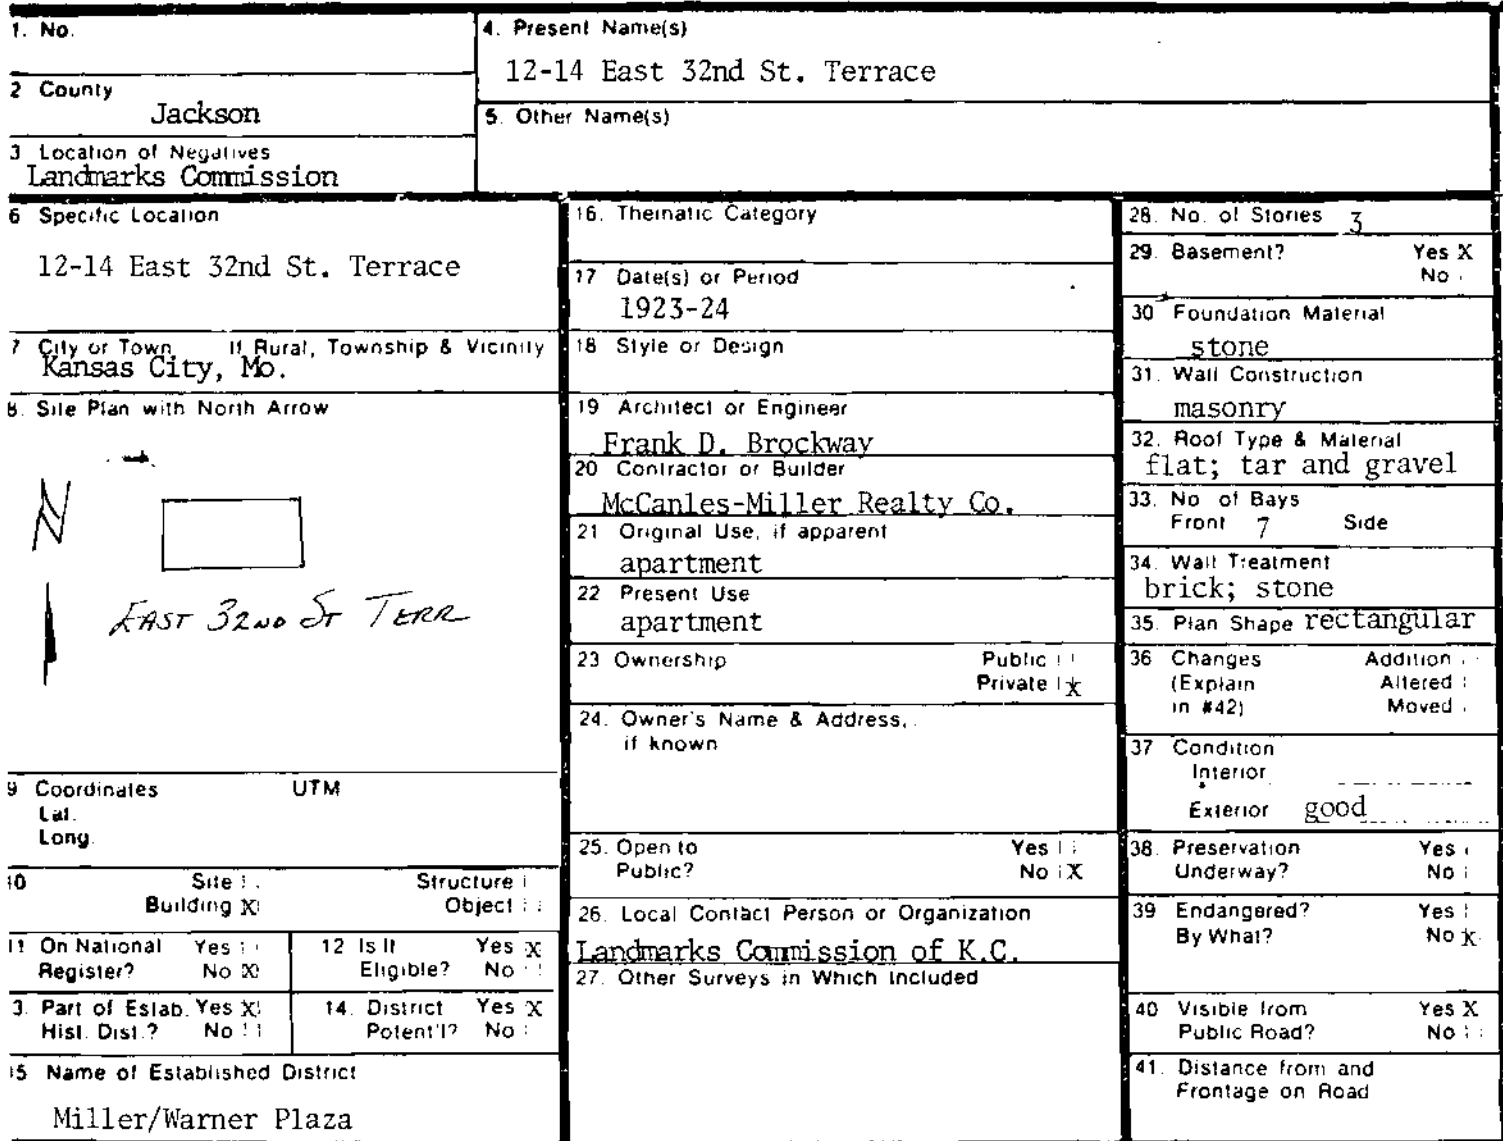 1. No.
2 County
Jackson
3 Location of Negatives
Landmarks Commission
4. Present Name(s)
12-14 East 32nd St. Terrace
5. Other Name(s)
6 Specific Location
12-14 East 32nd St. Terrace
7 City or Town If Rural, Township & Vicinity
Kansas City, Mo.
8. Site Plan with North Arrow
N
EAST 32ND ST TERR
9 Coordinates UTM
Lat.
Long.
10 Site Structure
Building X Object
11 On National Yes
Register? No X
12 Is It Yes X
Eligible? No
13. Part of Estab. Yes X
Hist. Dist.? No
14. District Yes X
Potent'l? No
15 Name of Established District
Miller/Warner Plaza
16. Thematic Category
17 Date(s) or Period
1923-24
18 Style or Design
19 Architect or Engineer
Frank D. Brockway
20 Contractor or Builder
McCanles-Miller Realty Co.
21 Original Use, if apparent
apartment
22 Present Use
apartment
23 Ownership Public
Private X
24. Owner's Name & Address,
if known
25. Open to Yes
Public? No X
26. Local Contact Person or Organization
Landmarks Commission of K.C.
27. Other Surveys in Which Included
28. No. of Stories 3
29. Basement? Yes X
No
30 Foundation Material
stone
31. Wall Construction
masonry
32. Roof Type & Material
flat; tar and gravel
33. No of Bays
Front 7 Side
34. Wall Treatment
brick; stone
35. Plan Shape rectangular
36 Changes Addition
(Explain Altered
in #42) Moved
37 Condition
Interior
Exterior good
38. Preservation Yes
Underway? No
39 Endangered? Yes
By What? No X
40 Visible from Yes X
Public Road? No
41. Distance from and
Frontage on Road